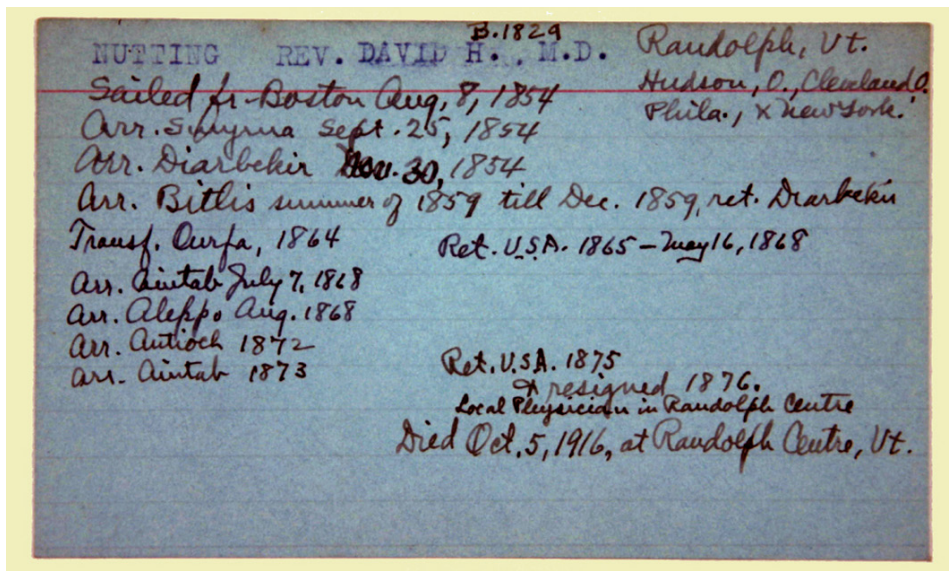 B. 1829
NUTTING REV. DAVID H., M.D.
Randolph, Vt.
Hudson, O., Cleveland, O.
Phila., & New York.
Sailed fr. Boston Aug. 8, 1854
Arr. Smyrna Sept. 25, 1854
Arr. Diarbekir Nov. 30, 1854
Arr. Bitlis summer of 1859 till Dec. 1859, ret. Diarbekir
Transf. Ourfa, 1864
Ret. U.S.A. 1865 – May 16, 1868
Arr. Aintab July 7, 1868
Arr. Aleppo Aug. 1868
Arr. Antioch 1872
Arr. Aintab 1873
Ret. U.S.A. 1875
& resigned 1876.
Local Physician in Randolph Centre
Died Oct. 5, 1916, at Randolph Centre, Vt.